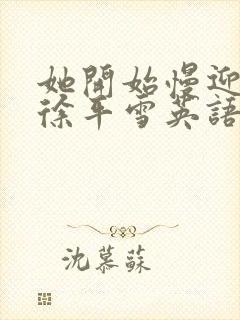 她開始慢迎
徐平雪英語
沈慕蘇